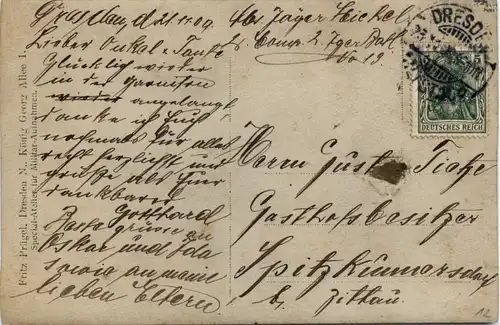 Dresden, d. 21.11.09. Abs. Jäger
2. Comp. 2. Jger Batl.
No 13
Lieber Onkel u. Tante
Glücklich wieder
in der Garnison
wieder angelangt
danke ich Euch
nochmals für alles
recht herzlich und
grüße als Euer
dankbarer
Gotthard
Beste Grüsse an
Oskar und Ida
sowie an meine
lieben Eltern
DRESDEN
DEUTSCHES REICH
Herrn Gustav
Gasthofsbesitzer
Spitzkunnersdorf
b. Zittau
12
Fritz Prügel, Dresden N., König Georg Allee 1.
Special-Atelier für Militär-Aufnahmen.